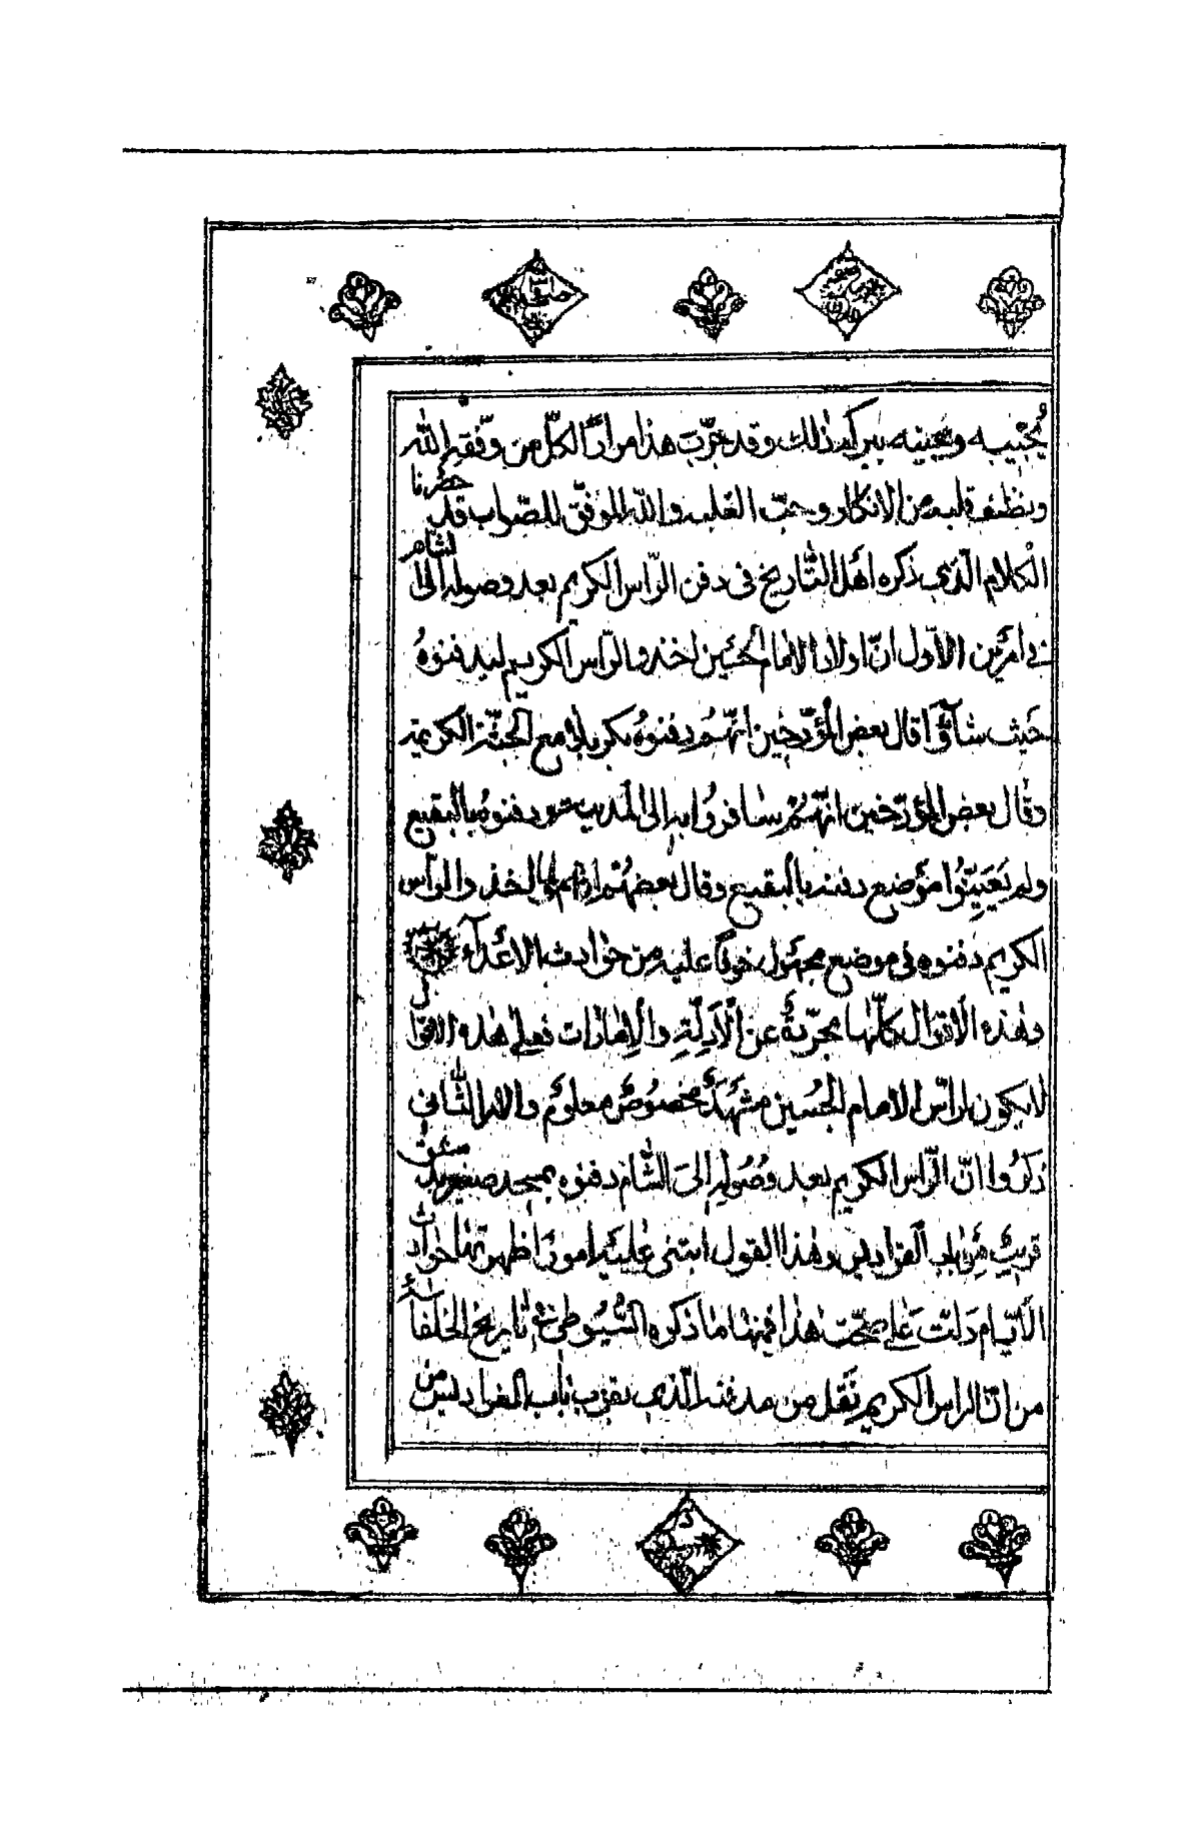 يُجيبه ويعينه ببركة ذلك وقد جرّب هذا مرارًا لكلّ من وفّقه الله
ونظف قلبه من الانكار وحجب القلب والله الموفّق للصّواب قد حصرنا
الكلام الّذي ذكره اهل التّاريخ في دفن الرّاس الكريم بعد وصوله الى الشام
في امرين الاوّل انّ اولاد الامام الحسين اخذوا الرّاس الكريم ليدفنوهُ
حيث شآؤا قال بعض المؤرّخين انّهم دفنوهُ بكربلا مع الجثّة الكريمة
وقال بعض المؤرّخين انّهُمْ سافروُا به الى المدينة ودفنوهُ بالبقيع
ولم يَعَيِّنُوا موضع دفنه بالبقيع وقال بعضهُم انهم لما اخذوا الرّاس
الكريم دفنوه في موضع مجهُول خوفًا عليه من حوادث الاعْدآء
وهٰذه الاقوال كلّها مجرّدةٌ عن الْاَدِلّةِ والْاِمارات فعلى هٰذه الاقوال
لا يكون لراسّ الامام الحُسين مشهَدٌ مخصُوصٌ معلوُم والامر الثّاني
ذكَرُوا انّ الرّاس الكريم بعد وصُوله الىَ الشّام دفنوه بمسجد صغير بدمشق
قريبٌ مِن باب الفراديس وهٰذا القول ابتنى علَيْه امورٌ اظهرتها حوادث
الْايّام دَلّتْ عَلى صحّت هٰذا فمنها ما ذكره السُّيُوطي في تاريخ الخلفآء
من انّ الراس الكريم نُقل من مدفنه الّذي بقرب باب الفراديس من